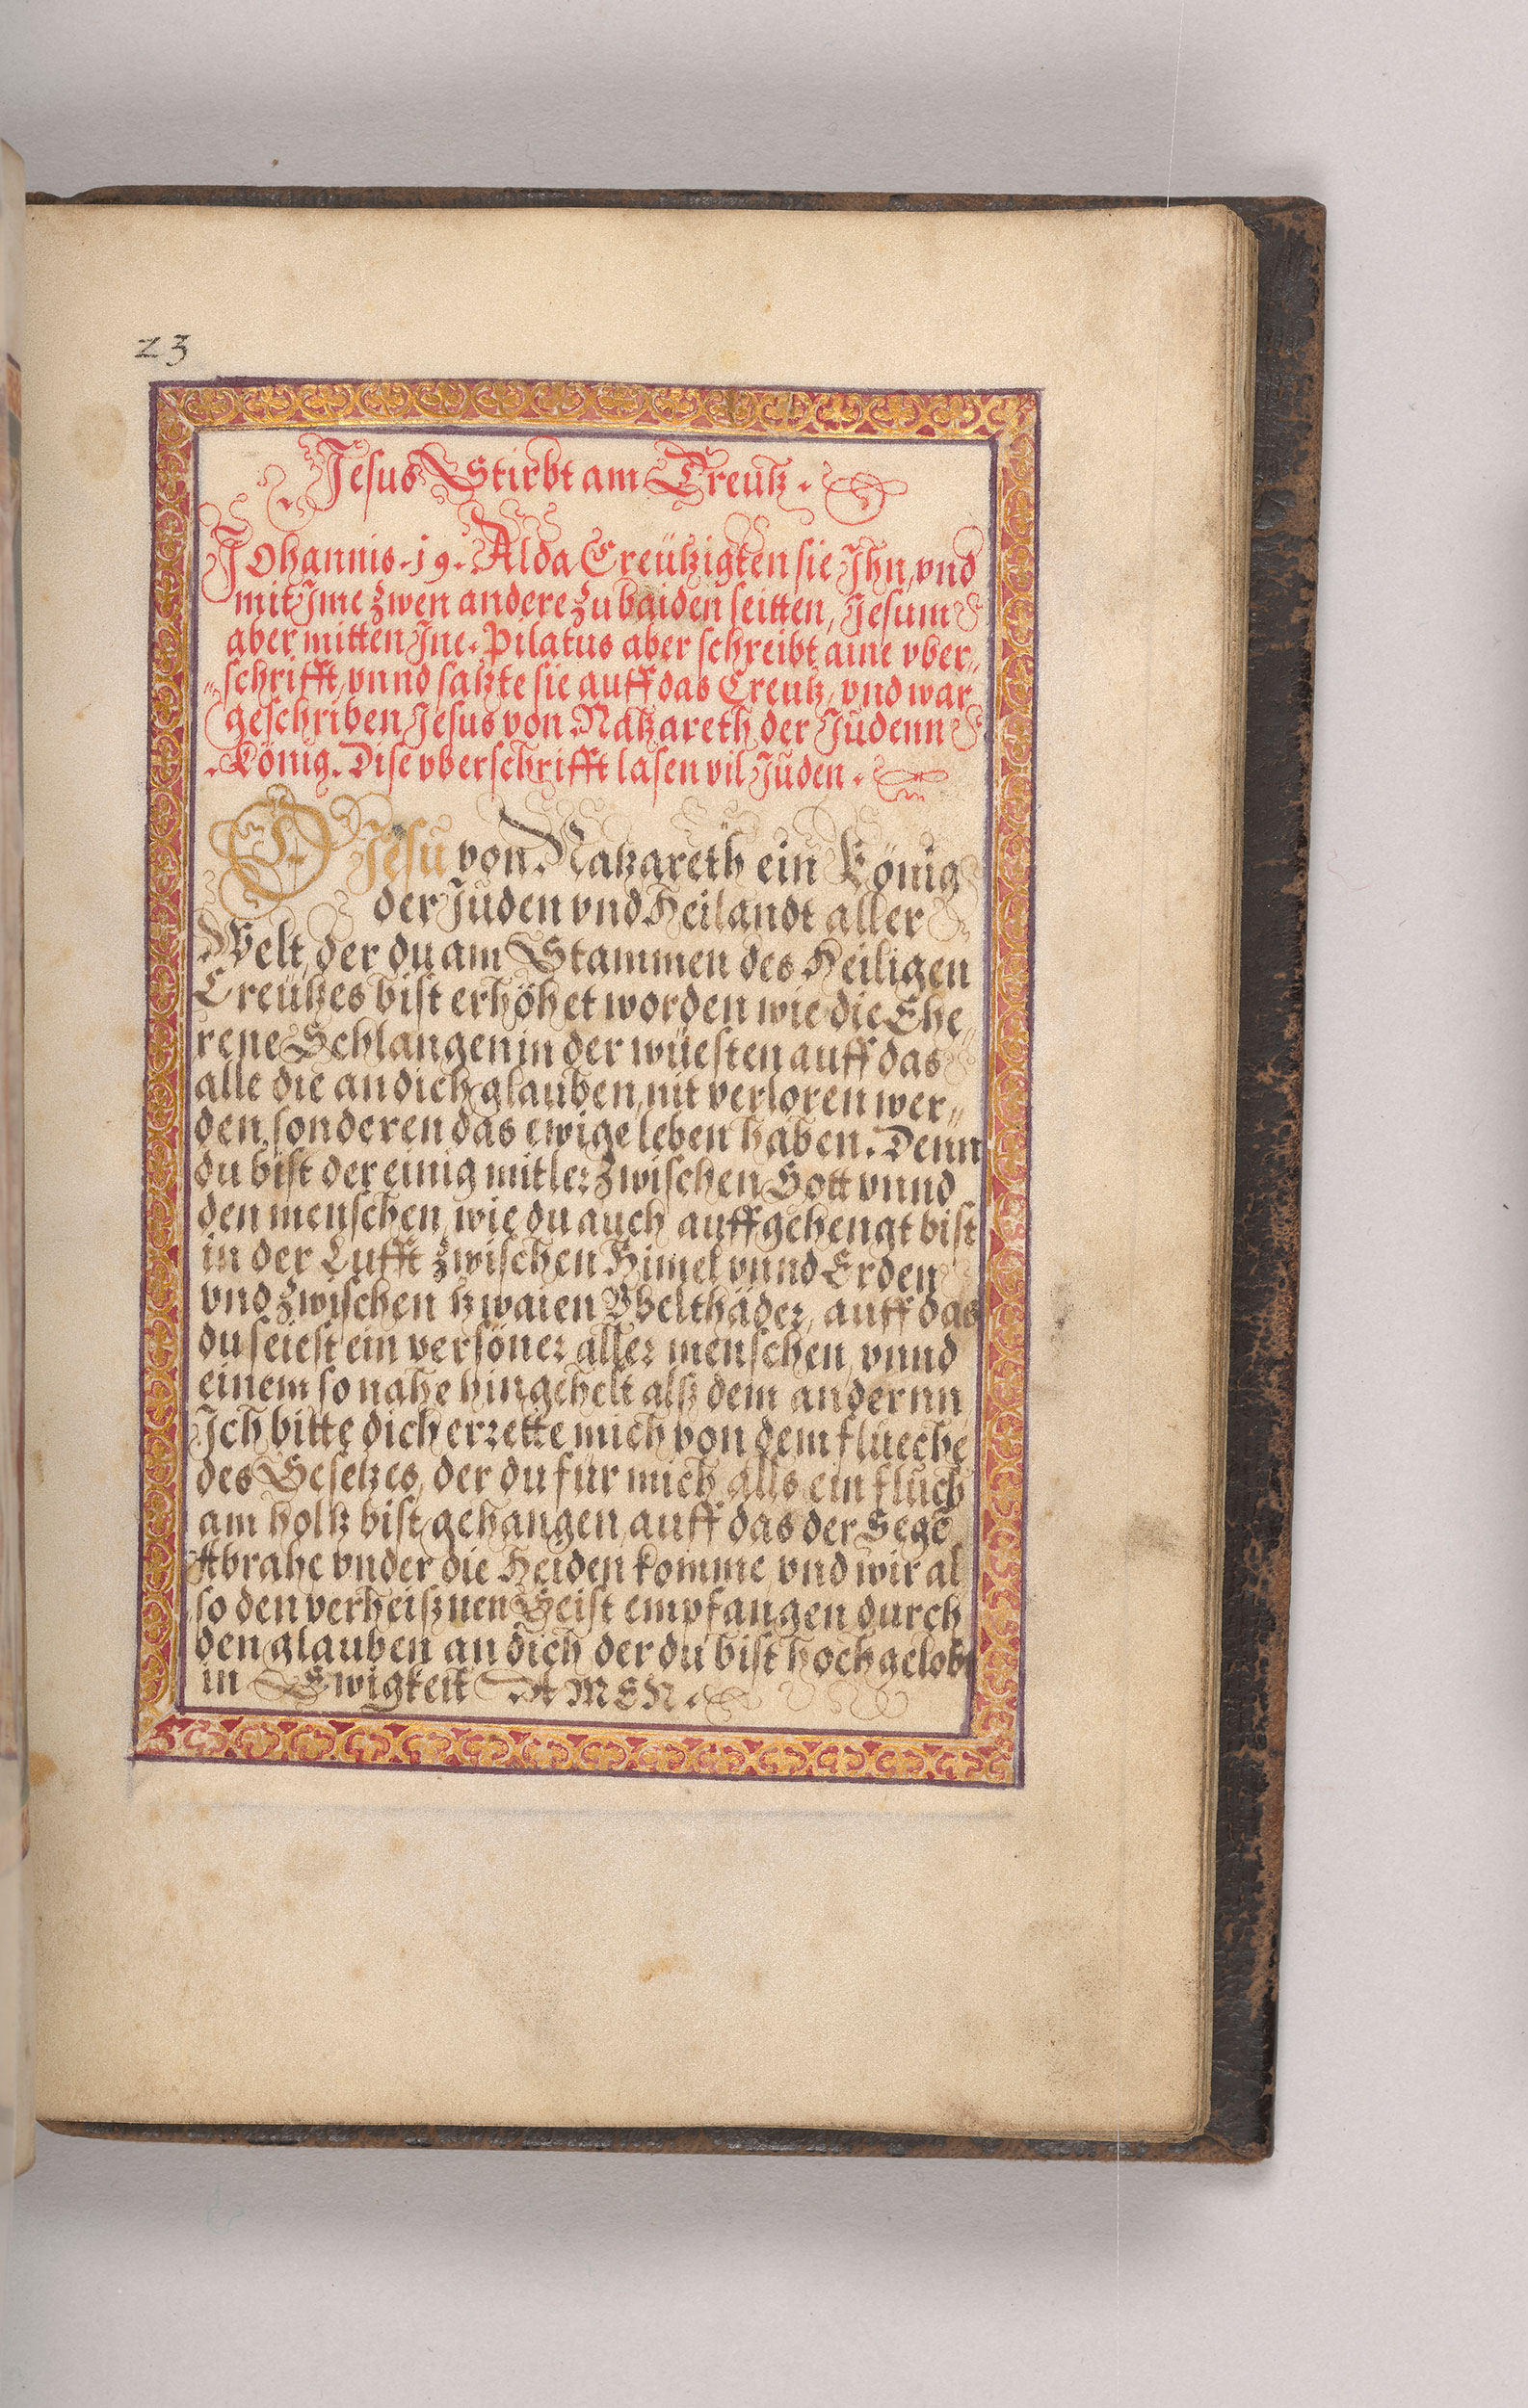 23
Jesus Stirbt am Creutz.
Johannis. 19. Alda Creützigten sie Ihn, vnd
mit Ime zwen andere zu baiden seitten, Jesum
aber mitten Ine. Pilatus aber schreibt aine vber„
„schrifft, vnnd satzte sie auff das Creutz, vnd war
geschriben Jesus von Natzareth der Juden̄
König. Dise vberschrifft lasen vil Juden.
O Jesu von Natzareth ein König
der Juden vnd Heilandt aller
Welt, der du am Stammen des Heiligen
Creützes bist erhöhet worden wie die Ehe„
rene Schlangen in der wüesten auff das
alle die an dich glauben, nit verloren wer„
den, sonderen das ewige leben haben. Denn
du bist der einig mitler zwischen Gott vnnd
den menschen, wie du auch auffgehengt bist
in der Lufft zwischen Himel vnnd Erden
vnd zwischen tzwaien Vbelthäder, auff das
du seiest ein versöner aller menschen, vnnd
einem so nahe hingehelt alsz dem andernn
Ich bitte dich errette mich von dem flueche
des Gesetzes, der du fur mich alls ein fluch
am holtz bist gehangen, auff das der Segē
Abrahe vnder die Heiden komme, vnd wir al
so den verheisznen Geist empfangen durch
den glauben an dich der du bist hochgelobt
in Ewigkeit AMEN.